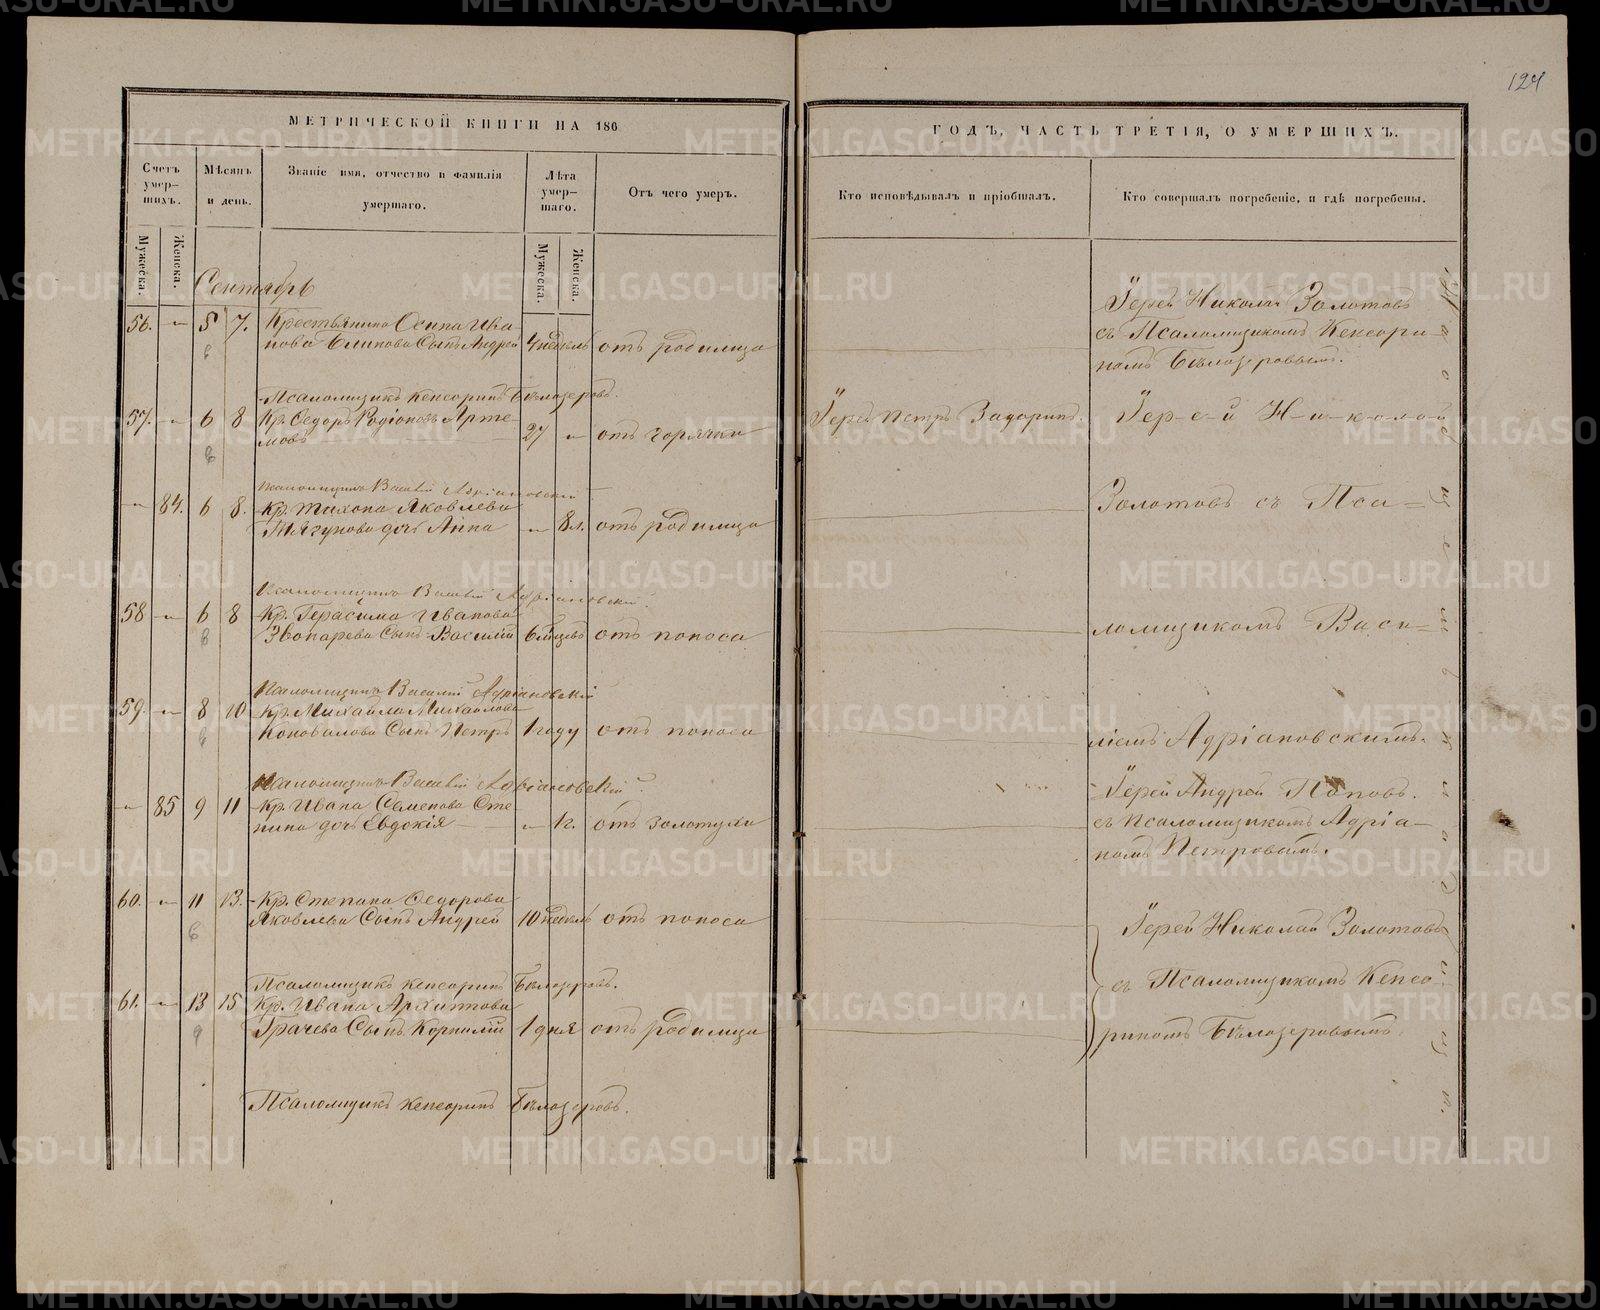 124
МЕТРИЧЕСКОЙ КНИГИ НА 186
ГОДЪ, ЧАСТЬ ТРЕТІЯ, О УМЕРШИХЪ.
Счетъ умер-
шихъ.
Мѣсяцъ
и день.
Званіе имя, отчество и фамилія
умершаго.
Лѣта
умер-
шаго.
Отъ чего умеръ.
Кто исповѣдывалъ и пріобщалъ.
Кто совершалъ погребеніе, и гдѣ погребены.
Мужеска.
Женска.
Мужеска.
Женска.
Сентябрь
56. 5 7. Крестьянина Осипа Ива-
нова сынъ Андрей 4 недѣль отъ родимца
Іерей Николай Золотовъ
съ Псаломщикомъ Кенсори-
номъ Бѣлозеровымъ.
Псаломщикъ Кенсоринъ Бѣлозеровъ.
57. 6 8 Кр. Ѳедоръ Родіоновъ Арте-
мовъ 27 отъ горячки
Іерей Петръ Задоринъ.
Іерей Николай
Псаломщикъ Василій Адріановскій
84. 6 8. Кр. Тихона Яковлева
Тягунова дочь Анна 8 л. отъ родимца
Золотовъ съ Пса=
Псаломщикъ Василій Адріановскій.
58 6 8 Кр. Герасима Иванова
Звонарева сынъ Василій 6 мѣсяцевъ отъ поноса
ломщикомъ Васи=
Псаломщикъ Василій Адріановскій
59. 8 10 Кр. Михайла Михайлова
Коновалова сынъ Петръ 1 году отъ поноса
ліемъ Адріановскимъ.
Псаломщикъ Василій Адріановскій
85 9 11 Кр. Ивана Семенова Сте-
нина дочь Евдокія 1 г. отъ золотухи
Іерей Андрей Поповъ.
съ псаломщикомъ Адріа-
номъ Петровымъ.
60. 11 13. Кр. Степана Ѳедорова
Яковлева сынъ Андрей 10 недѣль отъ поноса
Іерей Николай Золотовъ
Псаломщикъ Кенсоринъ Бѣлозеровъ.
съ Псаломщикомъ Кенсо-
61. 13 15 Кр. Ивана Архипова
Грачева сынъ Корнилій 1 дня отъ родимца
риномъ Бѣлозеровымъ.
Псаломщикъ Кенсоринъ Бѣлозеровъ.
METRIKI.GASO-URAL.RU